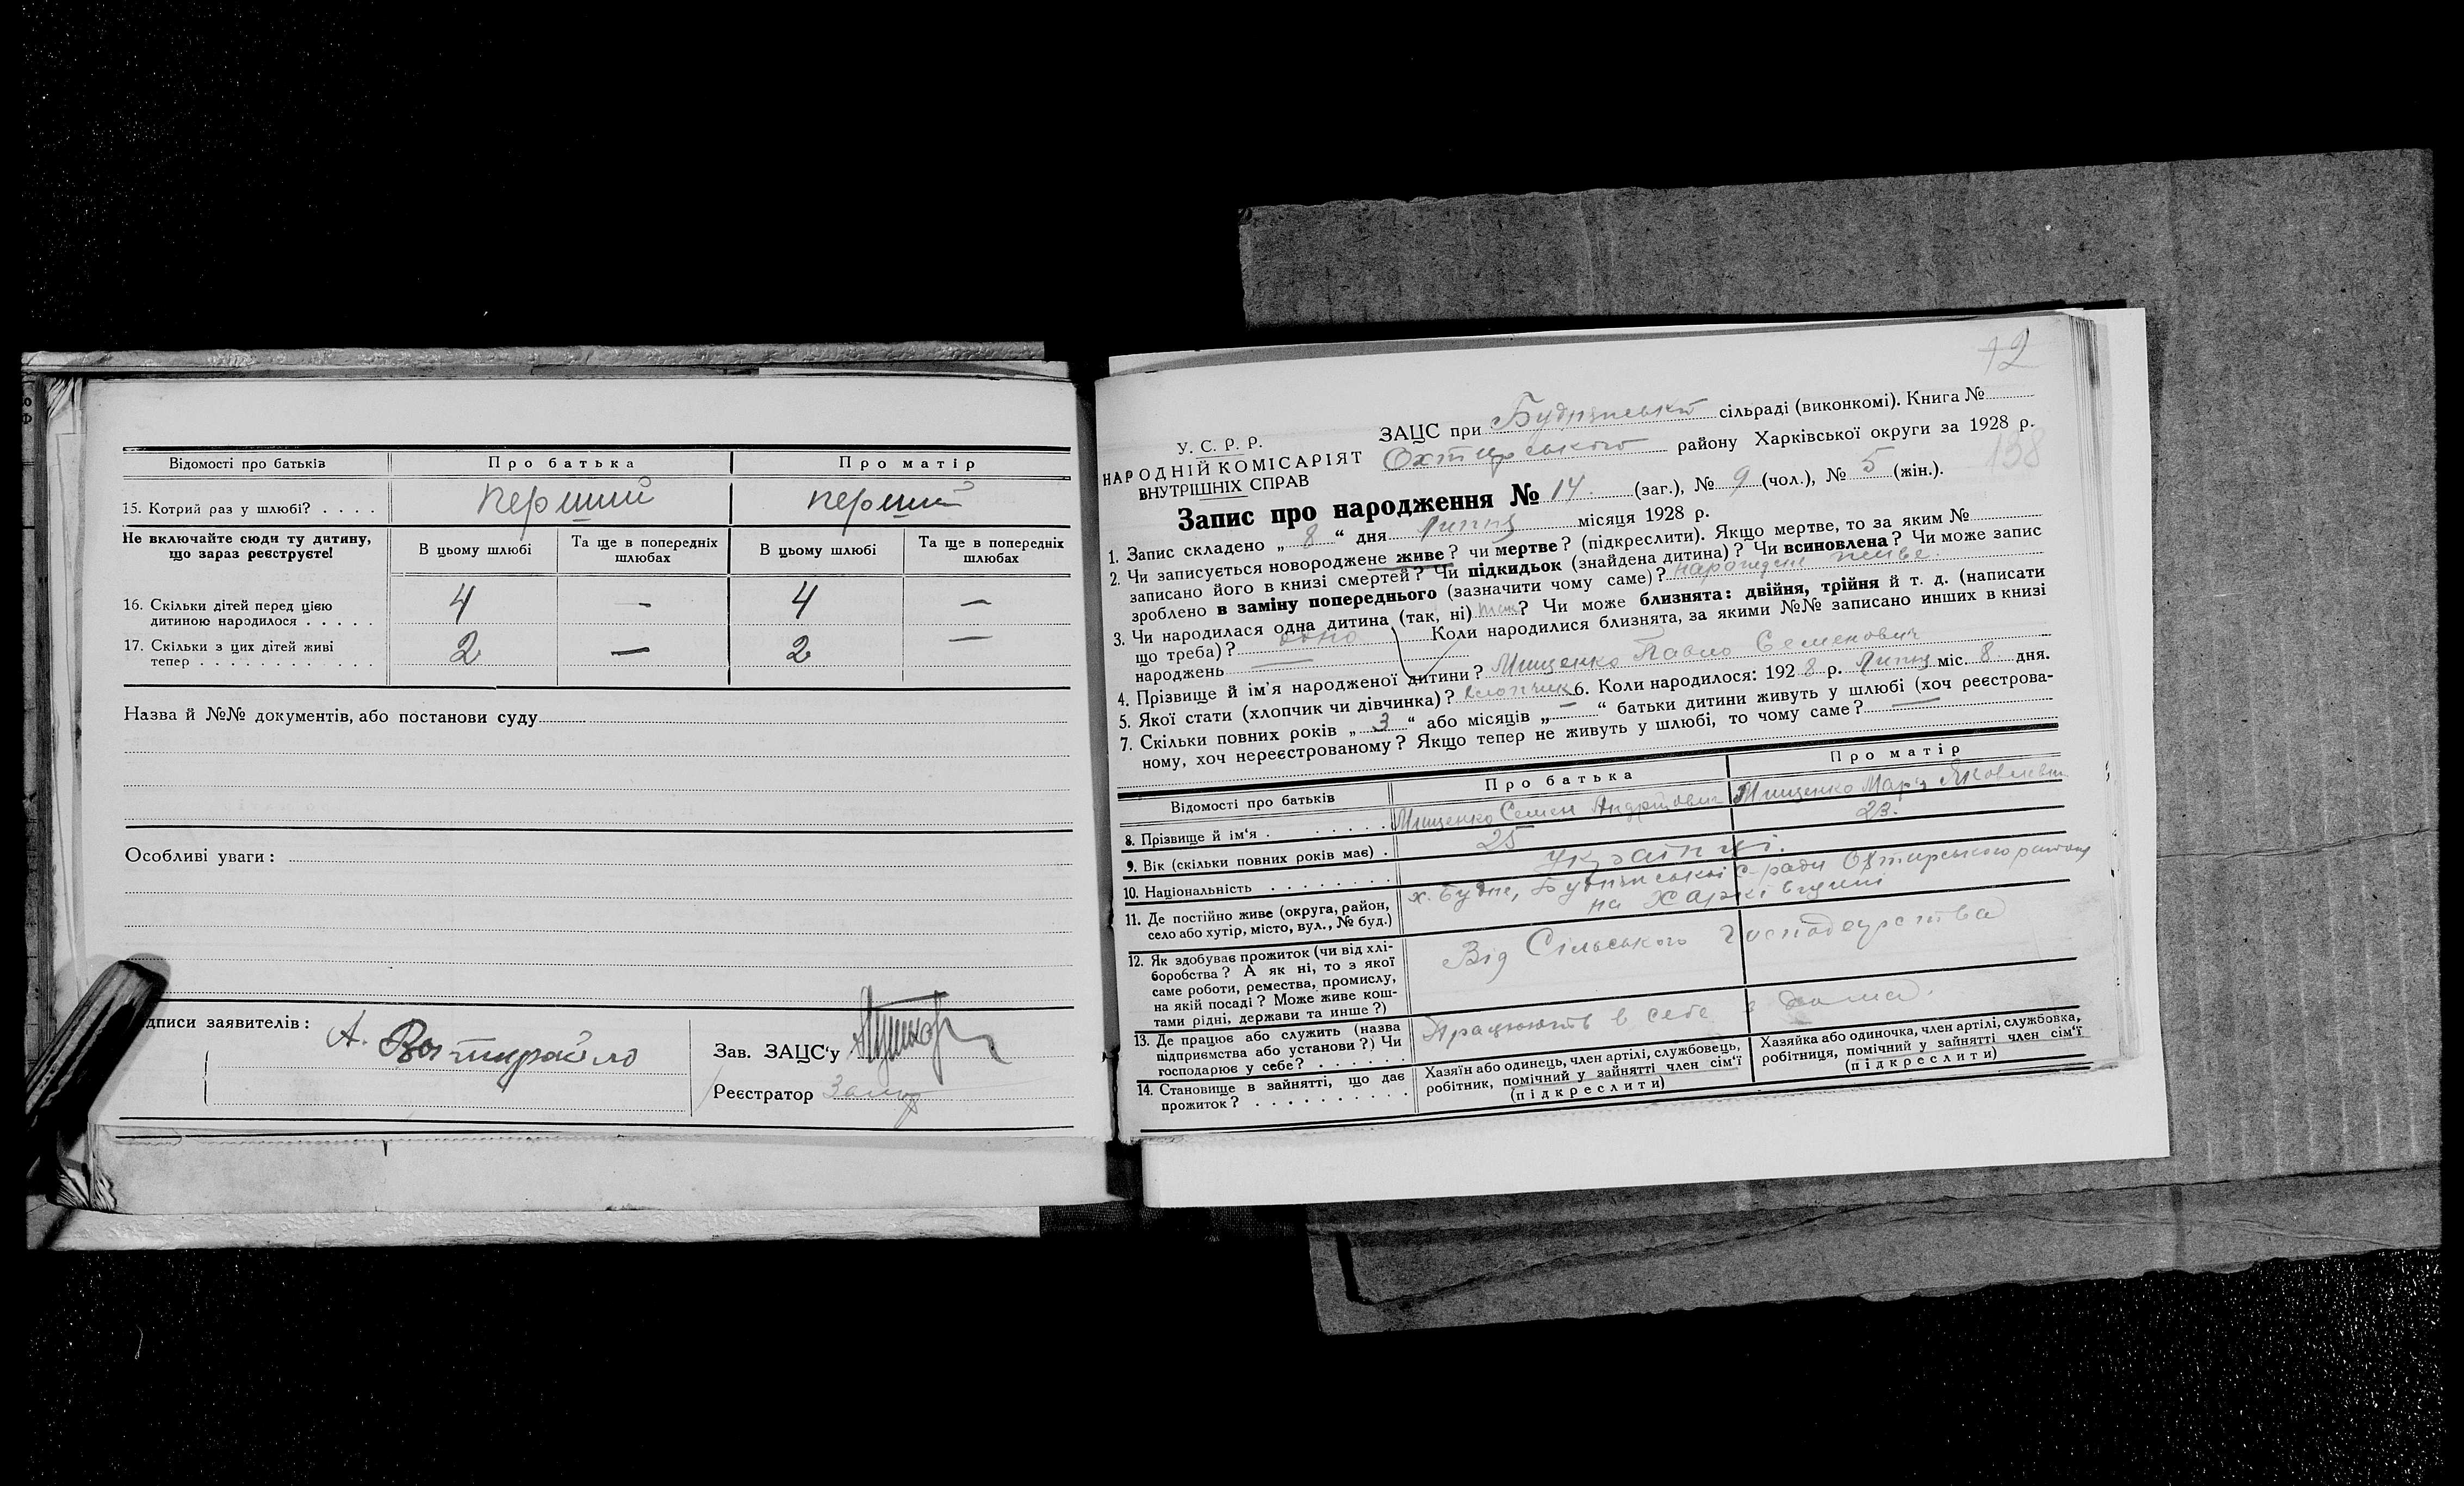 Відомості про батьків
Про батька
Про матір
15. Котрий раз у шлюбі? . . . .
перший
перший
Не включайте сюди ту дитину, що зараз реєструєте!
В цьому шлюбі
Та ще в попередніх шлюбах
В цьому шлюбі
Та ще в попередніх шлюбах
16. Скільки дітей перед цією
дитиною народилося . . . . .
4
—
4
—
17. Скільки з цих дітей живі
тепер . . . . . . . . . . .
2
—
2
—
Назва й №№ документів, або постанови суду
Особливі уваги:
дписи заявителів:
А.
Зав. ЗАЦС'у
Реєстратор
12
138
У. С. Р. Р.
НАРОДНІЙ КОМІСАРІЯТ
ВНУТРІШНІХ СПРАВ
ЗАЦС при Буднянській сільраді (виконкомі). Книга №
Охтирського району Харківської округи за 1928 р.
Запис про народження № 14. (заг.), № 9 (чол.), № 5 (жін.).
1. Запис складено „ 8 “ дня липня місяця 1928 р.
2. Чи записується новороджене живе? чи мертве? (підкреслити). Якщо мертве, то за яким №
записано його в книзі смертей? Чи підкидьок (знайдена дитина)? Чи всиновлена? Чи може запис
зроблено в заміну попереднього (зазначити чому саме)? народжене живе.
3. Чи народилася одна дитина (так, ні) так? Чи може близнята: двійня, трійня й т. д. (написати
що треба)? одно Коли народилися близнята, за якими №№ записано инших в книзі
народжень —
4. Прізвище й ім'я народженої дитини? Мищенко Павло Семенович
5. Якої стати (хлопчик чи дівчинка)? хлопчик 6. Коли народилося: 1928 р. липня міс. 8. дня.
7. Скільки повних років „ 3 “ або місяців „ — “ батьки дитини живуть у шлюбі (хоч реєстрова-
ному, хоч нереєстрованому? Якщо тепер не живуть у шлюбі, то чому саме? —
Відомості про батьків
Про батька
Про матір
8. Прізвище й ім'я . . . . . .
Мищенко Семен Андрійович
Мищенко Марʼя Яковлевна
9. Вік (скільки повних років має) .
25
23.
10. Національність . . . . . . . .
Українці.
11. Де постійно живе (округа, район,
село або хутір, місто, вул., № буд.)
х. Будне, Буднянської с-ради Охтирського району
на Харківщині
12. Як здобуває прожиток (чи від хлі-
боробства? А як ні, то з якої
саме роботи, ремества, промислу,
на якій посаді? Може живе кош-
тами рідні, держави та инше?)
Від Сільського господарства
13. Де працює або служить (назва
підприємства або установи?) Чи
господарює у себе? . . . . .
Працюють в себе в дома.
14. Становище в зайнятті, що дає
прожиток? . . . . . . . . . .
Хазяїн або одинець, член артілі, службовець,
робітник, помічний у зайнятті член сім'ї
(підкреслити)
Хазяйка або одиночка, член артілі, службовка,
робітниця, помічний у зайнятті член сім'ї
(підкреслити)